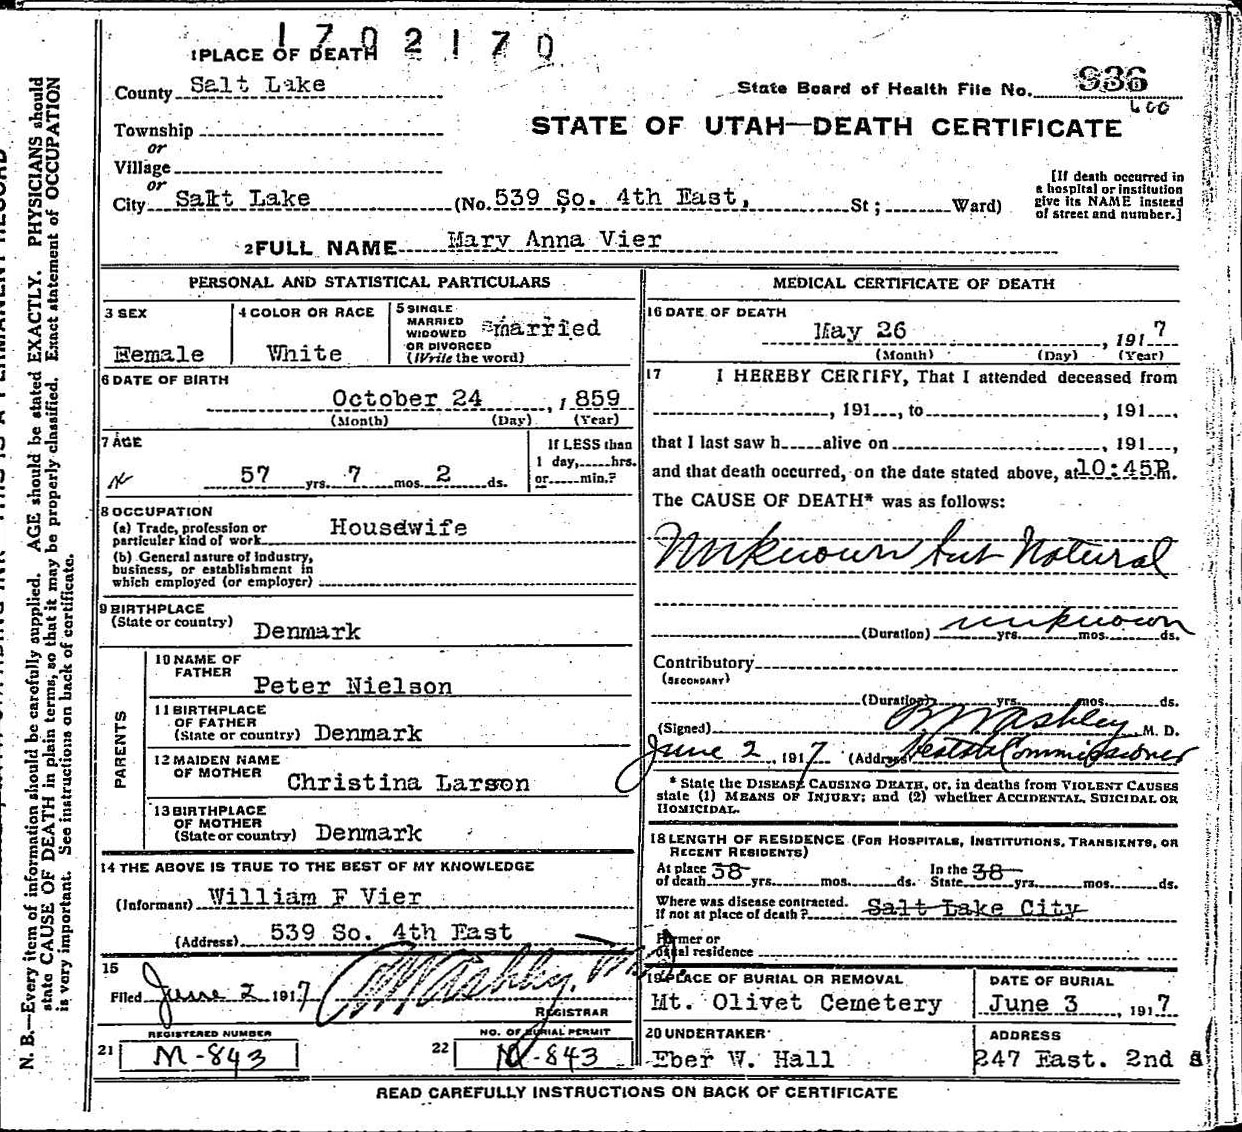 1702170
1 PLACE OF DEATH
County Salt Lake
State Board of Health File No. 936
600
Township
or
STATE OF UTAH—DEATH CERTIFICATE
Village
or
City Salt Lake (No. 539 So. 4th East, St; Ward)
[If death occurred in
a hospital or institution
give its NAME instead
of street and number.]
2 FULL NAME Mary Anna Vier
PERSONAL AND STATISTICAL PARTICULARS
3 SEX
Female
4 COLOR OR RACE
White
5 SINGLE
MARRIED
WIDOWED
OR DIVORCED
(Write the word)
married
6 DATE OF BIRTH
October 24, 1859
(Month) (Day) (Year)
7 AGE
57 yrs. 7 mos. 2 ds.
If LESS than
1 day, hrs.
or min.?
8 OCCUPATION
(a) Trade, profession or
particular kind of work Housewife
(b) General nature of industry,
business, or establishment in
which employed (or employer)
9 BIRTHPLACE
(State or country) Denmark
PARENTS
10 NAME OF
FATHER
Peter Nielson
11 BIRTHPLACE
OF FATHER
(State or country) Denmark
12 MAIDEN NAME
OF MOTHER Christina Larson
13 BIRTHPLACE
OF MOTHER
(State or country) Denmark
14 THE ABOVE IS TRUE TO THE BEST OF MY KNOWLEDGE
(Informant) William F Vier
(Address) 539 So. 4th East
15
Filed June 2 1917
REGISTRAR
REGISTERED NUMBER
21 M-843
NO. OF BURIAL PERMIT
22 M-843
MEDICAL CERTIFICATE OF DEATH
16 DATE OF DEATH
May 26, 1917
(Month) (Day) (Year)
17 I HEREBY CERTIFY, That I attended deceased from
, 191 , to , 191 ,
that I last saw h alive on , 191 ,
and that death occurred, on the date stated above, at 10:45P.m.
The CAUSE OF DEATH* was as follows:
Unknown but Natural
(Duration) unknown yrs. mos. ds.
Contributory
(SECONDARY)
(Duration) yrs. mos. ds.
(Signed) Ashley M. D.
June 2, 1917 (Address) Health Commissioner
* State the DISEASE CAUSING DEATH, or, in deaths from VIOLENT CAUSES
state (1) MEANS OF INJURY; and (2) whether ACCIDENTAL, SUICIDAL OR
HOMICIDAL.
18 LENGTH OF RESIDENCE (FOR HOSPITALS, INSTITUTIONS, TRANSIENTS, OR
RECENT RESIDENTS)
At place
of death 38 yrs. mos. ds.
In the
State 38 yrs. mos. ds.
Where was disease contracted.
If not at place of death? Salt Lake City
Former or
usual residence
19 PLACE OF BURIAL OR REMOVAL
Mt. Olivet Cemetery
DATE OF BURIAL
June 3, 1917
20 UNDERTAKER
Eber W. Hall
ADDRESS
247 East. 2nd S
READ CAREFULLY INSTRUCTIONS ON BACK OF CERTIFICATE
N. B.—Every item of information should be carefully supplied. AGE should be stated EXACTLY. PHYSICIANS should
state CAUSE OF DEATH in plain terms, so that it may be properly classified. Exact statement of OCCUPATION
is very important. See instructions on back of certificate.